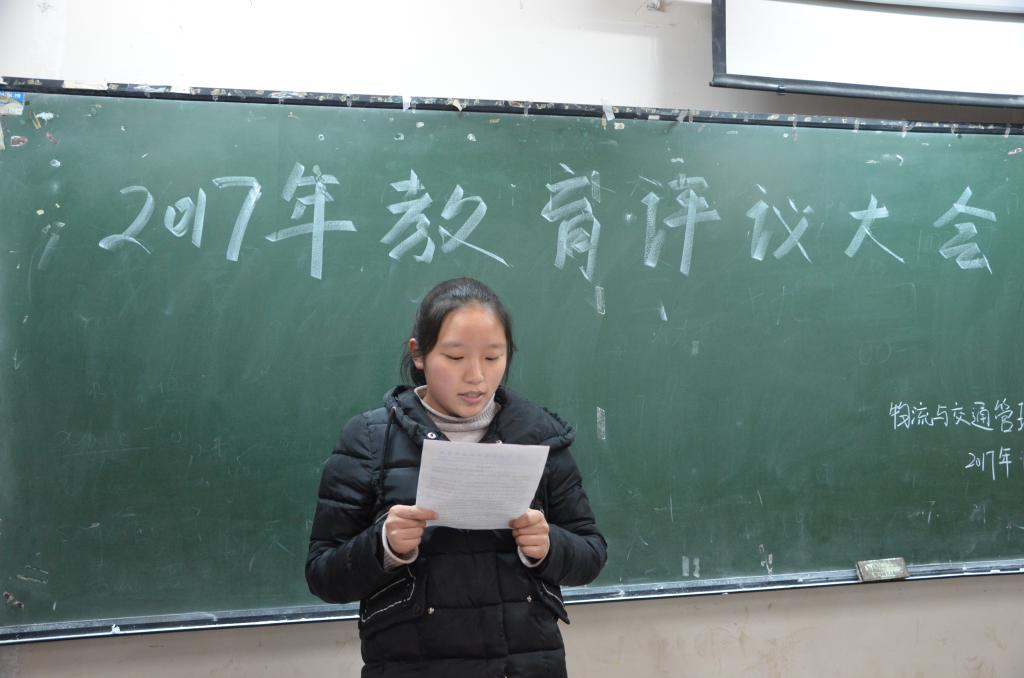 2017年教育评议大会
物流与交通管理
2017年